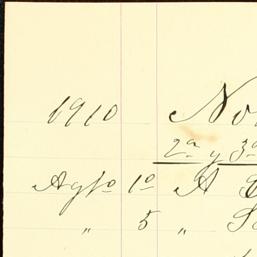 1910 No
2ª y 3ª
Agto 1º A
" 5 "